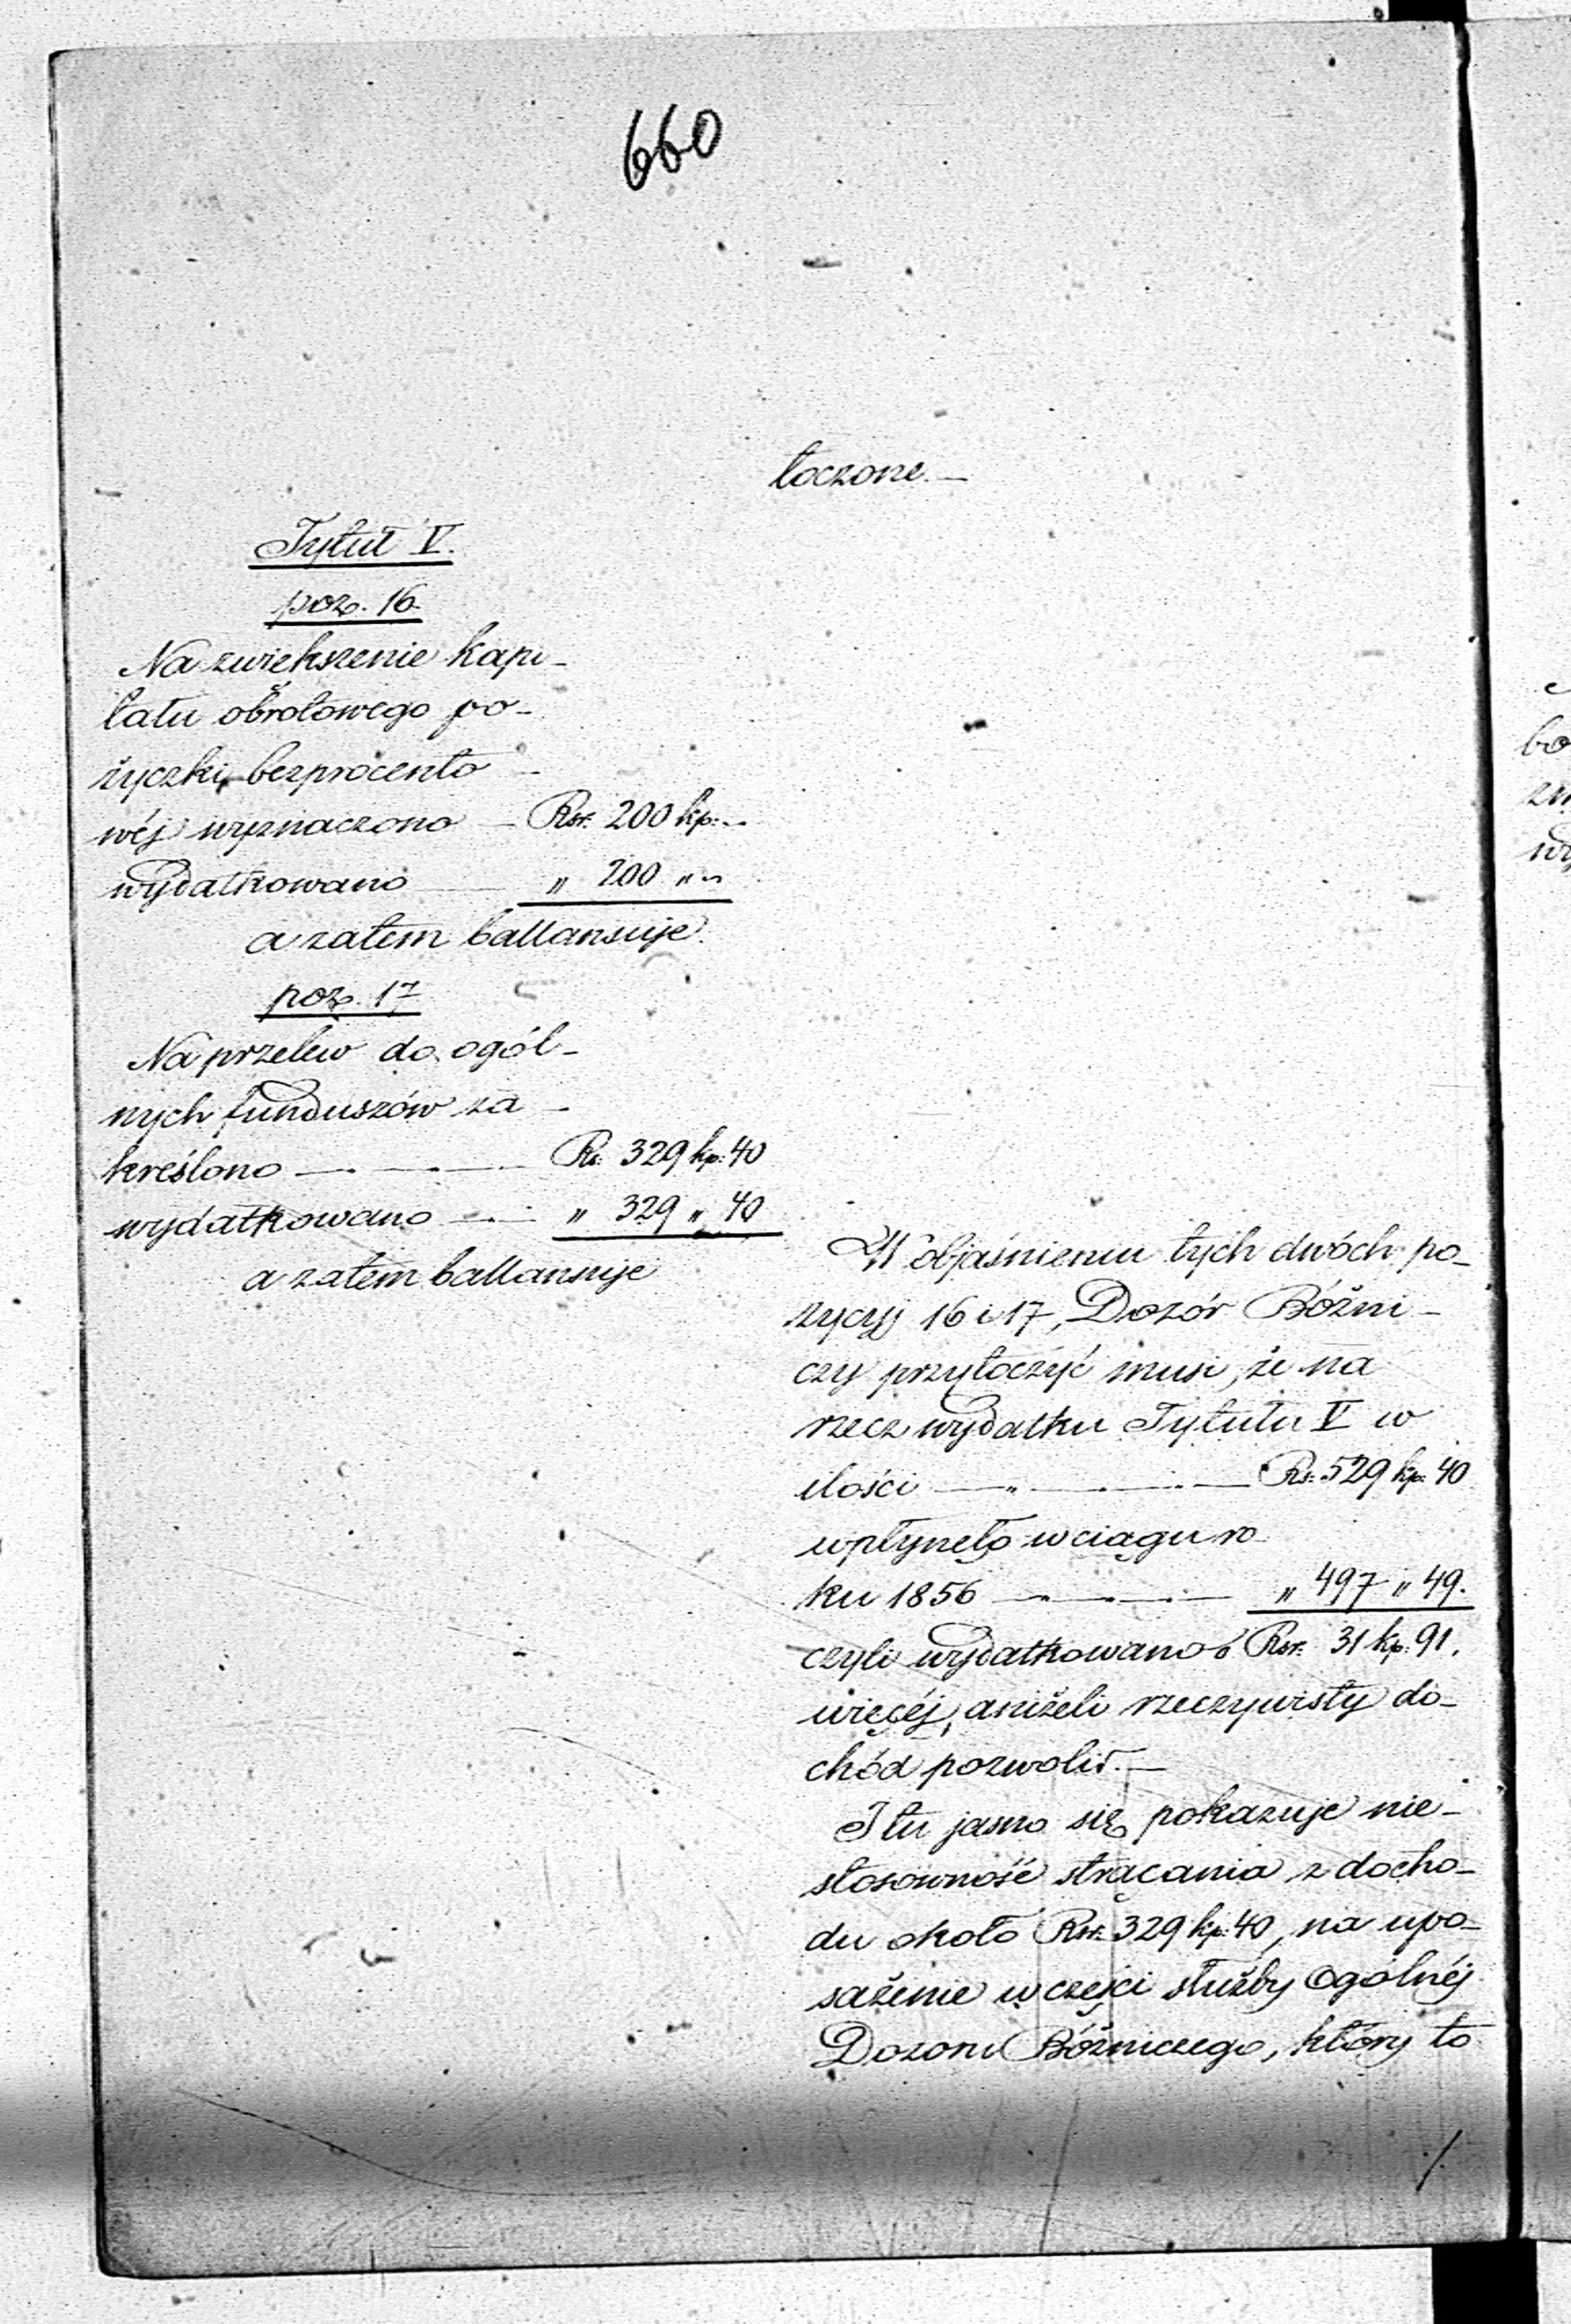 660
toczone.—
Tytuł V.
poz. 16.
Na zwiekszenie kapi-
tału obrotowego po-
życzki bezprocento-
wéj wyznaczono — Rsr. 200 kp: „
wydatkowano — „ 200 „ „
a zatem ballansuje.
poz. 17
Na przelew do ogól-
nych funduszów za-
kreślono — Rs: 329 kp: 40
wydatkowano — „ 329 „ 40
a zatem ballansuje
W objaśnieniu tych dwóch po-
zycyj 16 i 17, Dozór Bóżni-
czy przytoczyć musi, że na
rzecz wydatku Tytułu V w
ilości — „ — Rs: 529 kp: 40
wpłynęło w ciągu ro-
ku 1856 — „ 497 „ 49.
czyli wydatkowano o Rsr. 31 kp: 91.
więcéj, aniżeli rzeczywisty do-
chód pozwolił.—
I tu jasno się pokazuje nie-
stosowność strącania z docho-
du około Rsr: 329 kp: 40, na upo-
sażenie w części służby Ogólnéj
Dozoru Bóżniczego, który to
./.